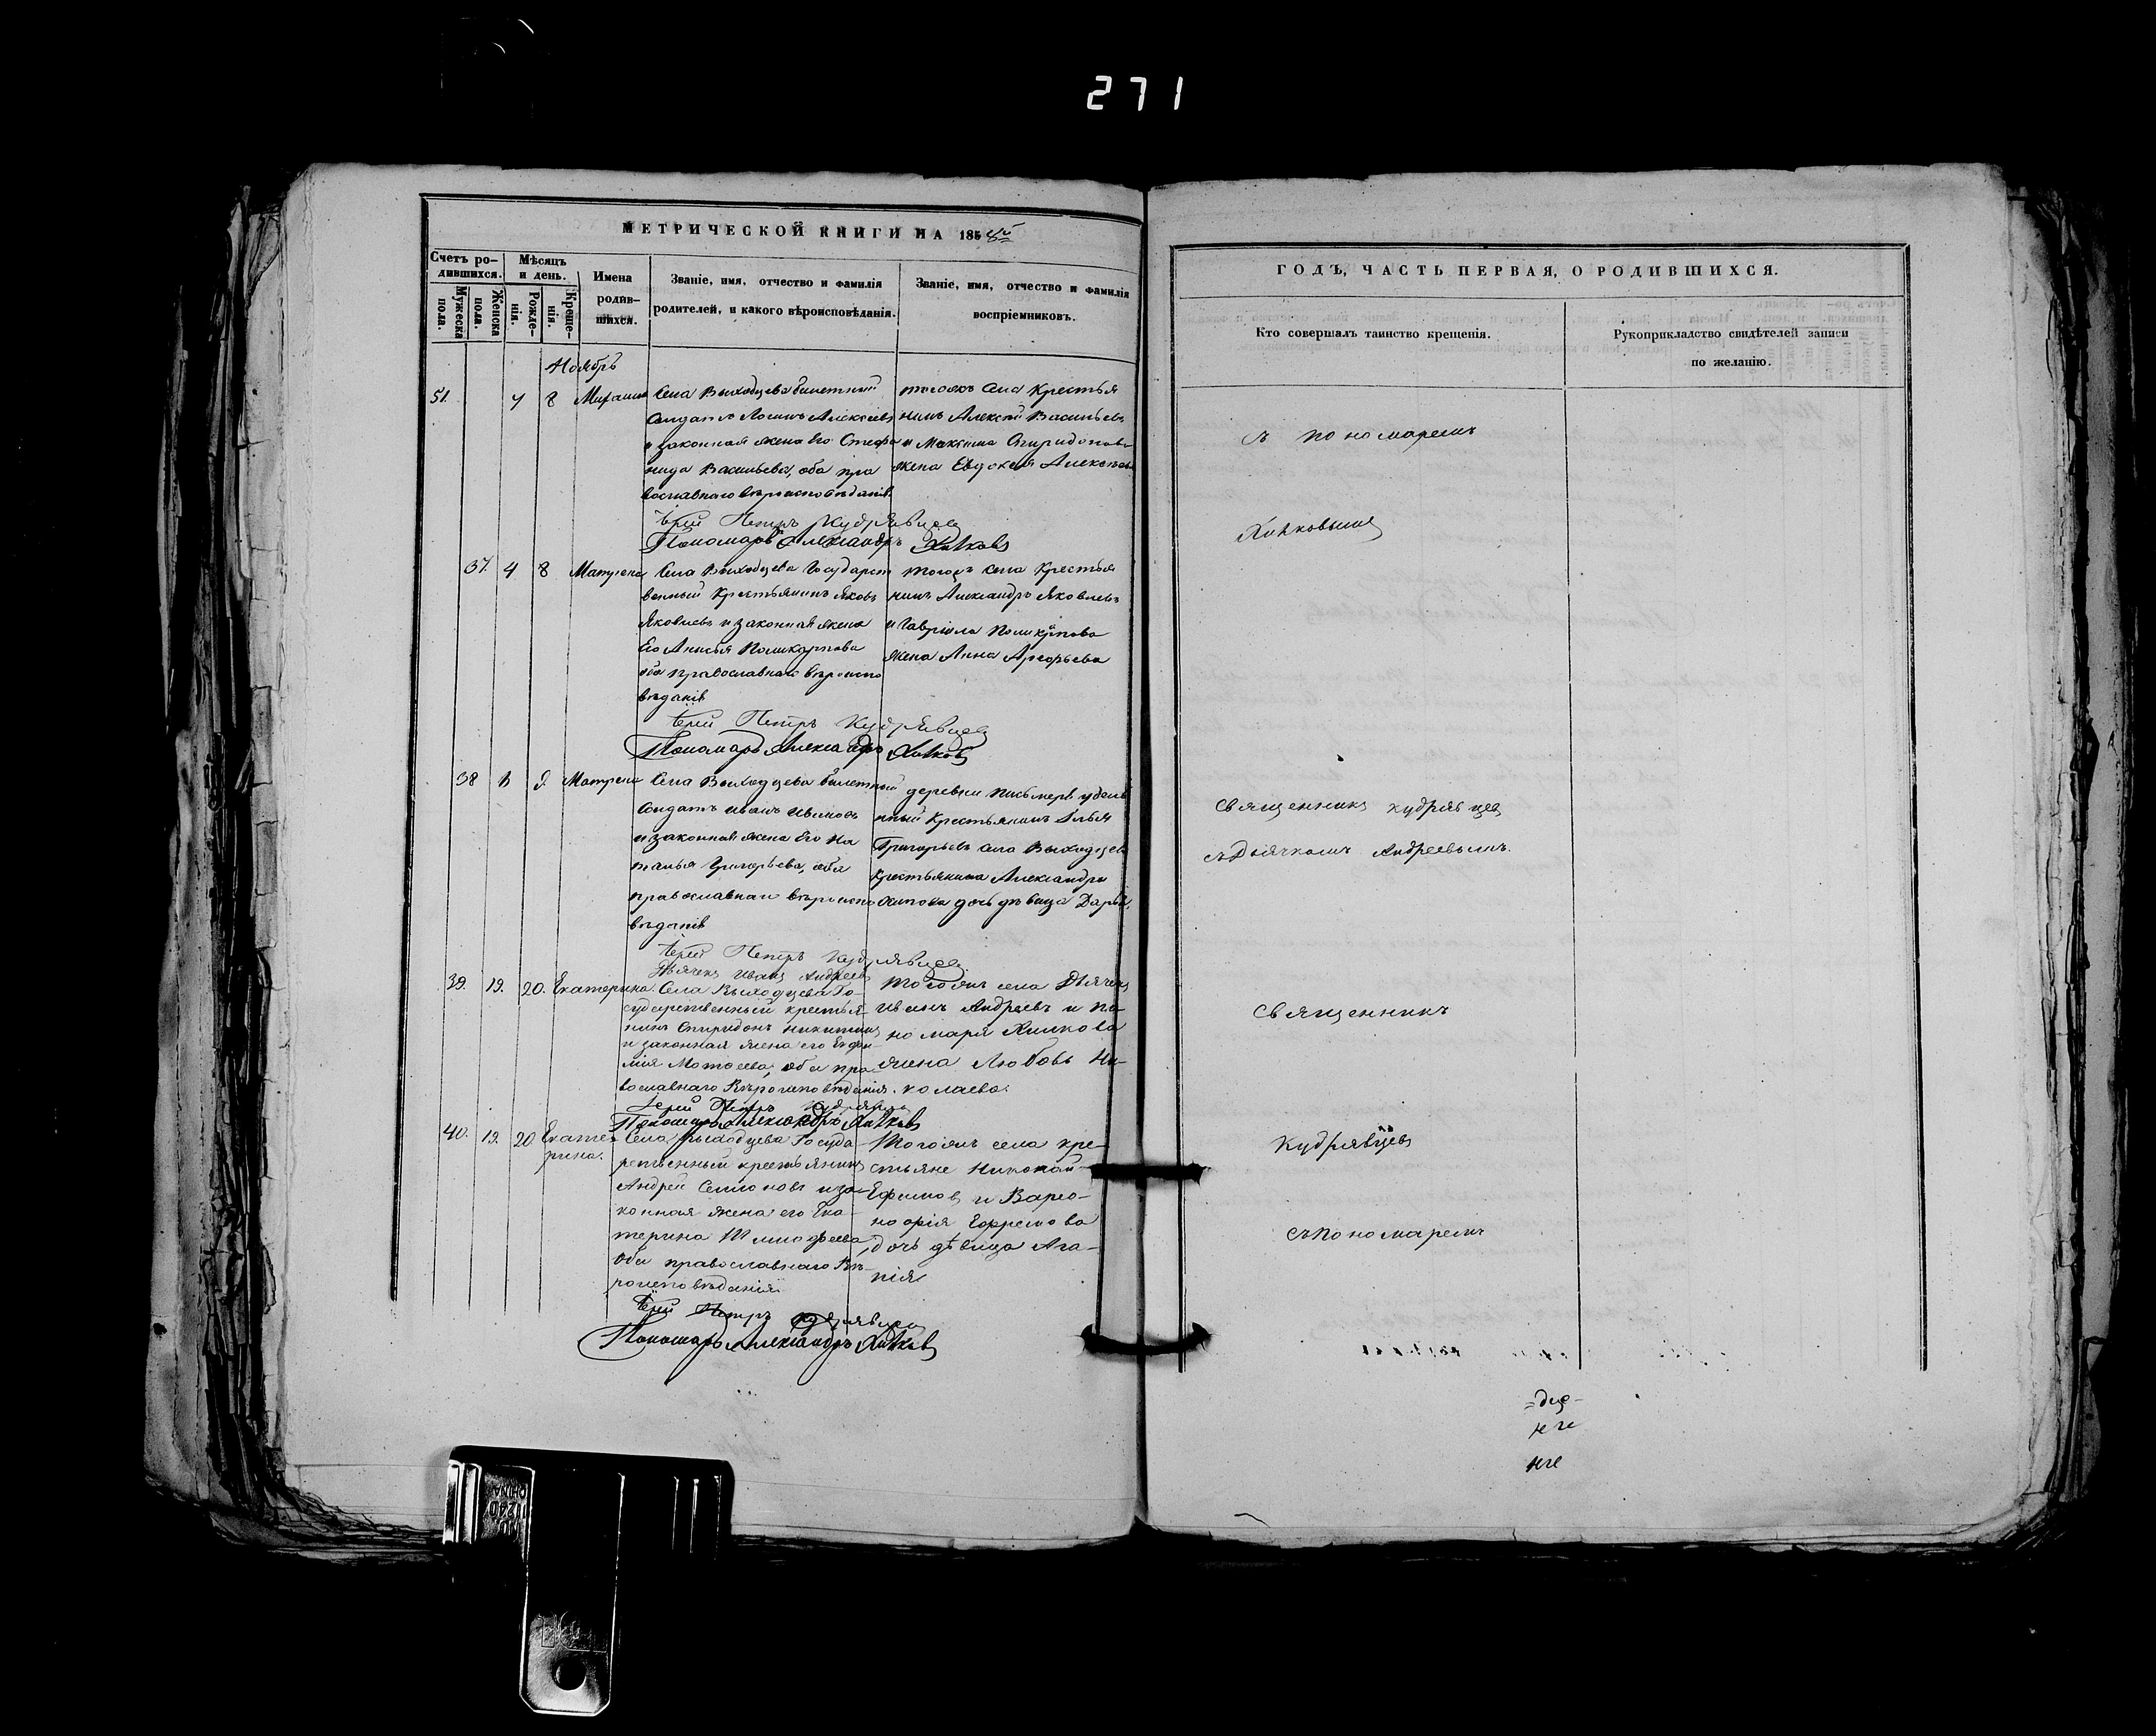 271
МЕТРИЧЕСКОЙ КНИГИ НА 1858й
Счетъ ро-
дившихся.
Мужеска пола.
Женска пола.
Мѣсяцъ
и день.
Рожде-
нія.
Креще-
нія.
Имена
родив-
шихся.
Званіе, имя, отчество и фамилія
родителей, и какого вѣроисповѣданія.
Званіе, имя, отчество и фамилія
воспріемниковъ.
Ноябрь
51. 8
Села Выходцева билетный
Солдатъ Логинъ Алексеевъ
и законная жена Его Стефа
нида Васильева, оба пра
вославнаго вѣроисповѣданія.
тогожъ села Крестья
нинъ Алексей Васильевъ
и Максима Спиридонова
жена Евдокея Алексеева
Іерей Петръ Кудрявцев
Пономарь Александръ Хилков
37. 4 8 Матрена
Села Выходцева Государст
венный Крестьянинъ Яковъ
Яковлевъ и законная жена
Его Анисья Поликарпова
оба православнаго вѣроиспо
вѣданія
тогожъ села Крестья
нинъ Александръ Яковлевъ
и Гавріила Поликарпова
жена Анна
Іерей Петръ Кудрявцев
Пономарь Александръ Хилков
38 9 Матрена
Села Выходцева билетный
Солдатъ Иванъ Ивановъ
и законная жена Его На
талья Григорьева, оба
православнаго вѣроиспо
вѣданія
деревни
крестьянинъ Илья
Григорьевъ села Выходцева
крестьянина Александра
дочь дѣвица Дарья.
Іерей Петръ Кудрявцев
Дьячекъ Иванъ Андреев
39. 19. 20. Екатерина.
Села Выходцева Го-
сударственный крестья-
нинъ Спиридонъ Никитинъ
и законная жена его Евфи-
мія Матвеева, оба пра-
вославнаго Вѣроисповѣданія.
Тогожъ села Дьячекъ
Иванъ Андреевъ и по-
номаря Хилкова
жена Любовь Ни-
колаева.
Іерей Петръ Кудрявцев
Пономарь Александръ Хилков
40. 19. 20 Екате-
рина.
Села Выходцева Госуда-
рственный крестьянинъ
Андрей Семеновъ и за-
конная жена его Ека-
терина Тимофеева,
оба православнаго Вѣ-
роисповѣданія
Тогожъ села кре-
стьяне Николай
Ефимов и Варсо-
нофія Ефремова
дочь дѣвица Ага-
пія
Іерей Петръ Кудрявцев
Пономарь Александръ Хилков
ГОДЪ, ЧАСТЬ ПЕРВАЯ, О РОДИВШИХСЯ.
Кто совершалъ таинство крещенія.
Рукоприкладство свидѣтелей записи
по желанію.
съ пономаремъ
Хилковымъ
Священникъ Кудрявцев
съ Дьячкомъ Андреевымъ.
Священникъ
Кудрявцев
съ пономаремъ